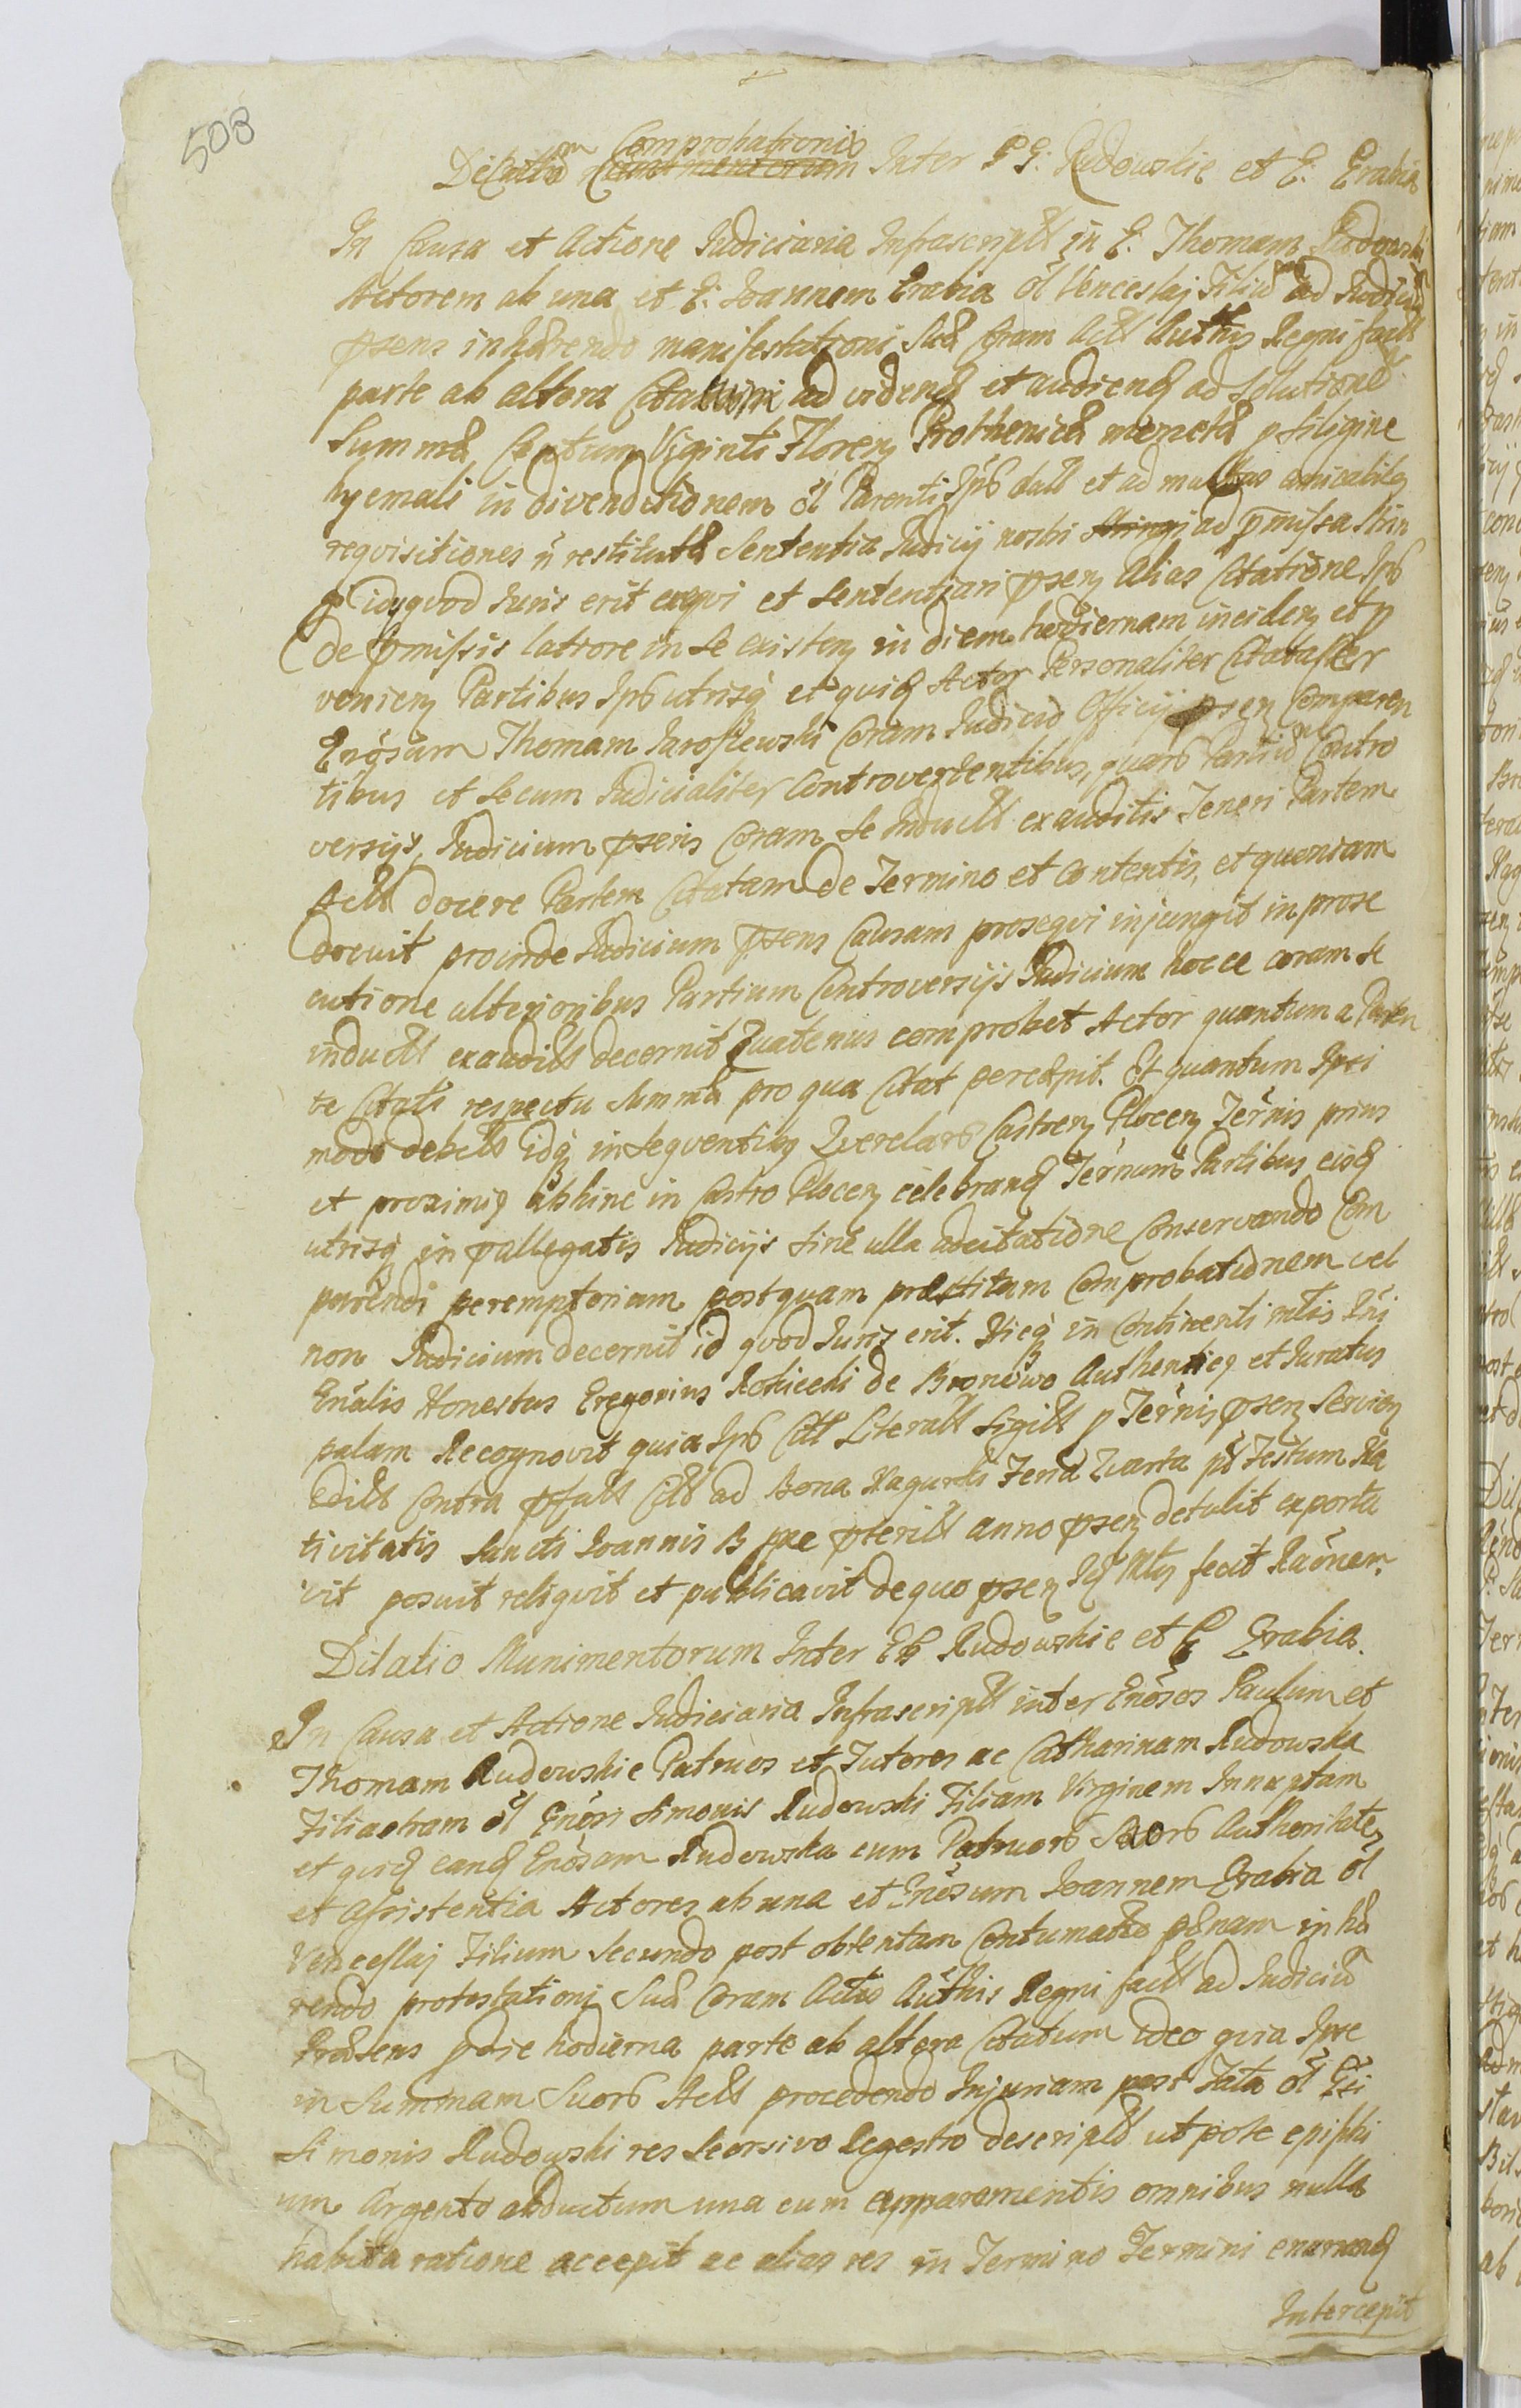 508
Comprobationis
Decretum Munimentorum Inter GG: Rudowskie et G: Grabia
In Causa et Actione Judiciaria Infrascripta in G: Thomam Rudowski
Actorem ab una et G: Joannem Grabia ol Venceslaj Filiū ad Judiciū
pſens inhærendo manifestationi Suæ Coram Actis Authis Regni factæ
parte ab altera Citatum ad videnđ et audienđ ad Solutionē
Summæ Centum Viginti Floren Prothenicæ mercetæ p siligine
hyemali in divenditionem ol Parenti Ipß datt et ad multas amicabiles
requisitiones ñ restitutæ Sententia Judicij nostri Stringi ad p̄missa Strin
gi idquod Juris erit exequi et Sententiari pſens Alias Citatione Ipß
de p̄missis latiore in se existen in diem hodiernam inciden et p
venien Partibus Ipß utrisq et quiđ Actor Personaliter Citatus per
Gnosum Thomam Jaroszewski Coram Judicio Officij pſen Comparen
tibus et secum Judicialiter Controvertentibus, quarū Partiū Contro
versijs Judicium pſens Coram se Inductt exauditis Teneri Partem
Actt docere Partem Citatam de Termino et Contentis, et quoniam
docuit proinde Judicium pſens Causam prosequi injungit in prose
cutione ulterioribus Partium Controversijs Judicium hocce coram se
inductt exauditt decernit Quatenus comprobet Actor quantum a Paren
te Citati respectu Summæ pro qua Citat percæpit. Et quantum Ipsi
modo debett idq in sequentibus Querelarū Castren Plocen Ternis prius
et proximis abhinc in Castro Plocen celebranđ Ternum Partibus eisđ
utrisq in pallegatis Judicijs sine ulla adcitatione Conservando Com
parendi peremptorium postquam præstitam Comprobationem vel
non Judicium decernit id quod Juris erit. Hicq in Continenti mtis Rni
Gnalis Honestus Gregorius Rokicchi de Bronowo Authenticq et Juratus
palam Recognovit quia Ipß Citt Literatt Sigitt p Ternis pſen Servien
Editt Contra pſatt Citt ad Bona Nagurki Feria Quarta pt Festum Na
tivitatis Sancti Joannis B pxe pteritt anno pſen detulit exporta
vit posuit reliqvit et publicavit de quo pſen Iđ Mty fecit Raōnem.
Dilatio Munimentorum Inter GG Rudowskie et G Grabia.
In Causa et Actione Judiciaria Infrascriptt inter Gnōsos Paulum et
Thomam Rudowskie Patruos et Tutores ac Catharinam Rudowska
Filiastram ol Gnōsi Simonis Rudowski Filiam Virginem Innuptam
et quiđ eanđ Gnōsam Rudowska cum Patruorū Suorū Authoritate
et assistentia Actores ab una et Gnōsum Joannem Grabia ol
Vencesslaj Filium Secundo post obtentam Contumatiæ pænam inhæ
rendo protestationi Suæ Coram Actis Authis Regni factt ad Judiciū
Præsens p die hodierna parte ab altera Citatum ideo quia Ipse
in Summam Suorū Actt procedendo Injuriam post Fata ol Gsi
Simonis Rudowski res Seorsivo Regestro descriptt utpote ephippi
um Argento abductum una cum apparamentis omnibus nulla
habita ratione accepit ac alias res in Termino Termini enarranđ
Intercepit